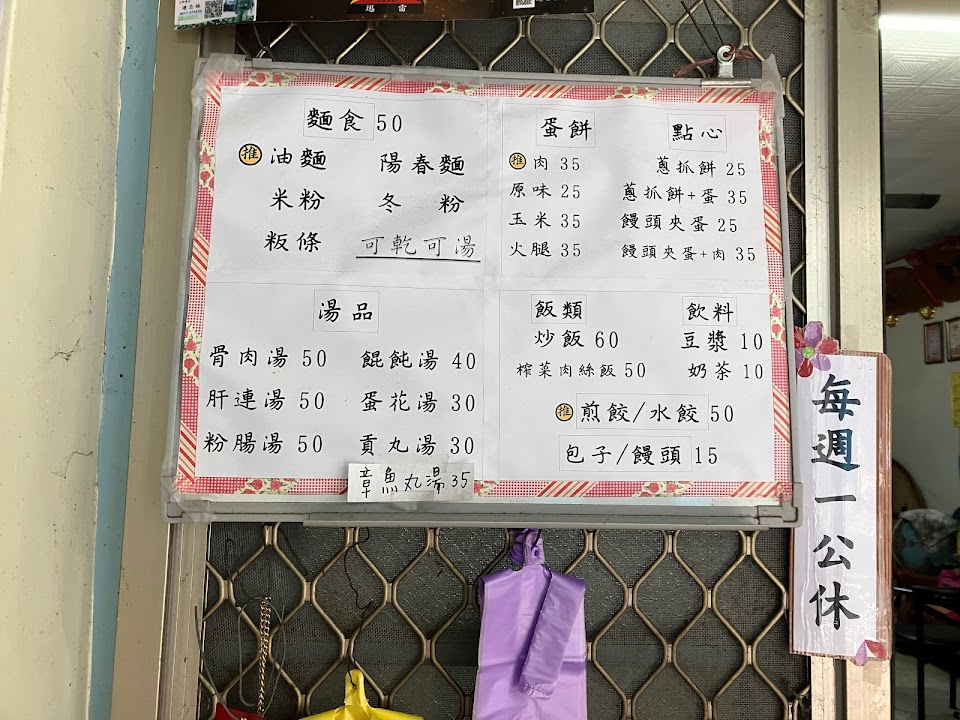 迅雷
麵食 50
推 油麵 陽春麵
米粉 冬粉
粄條 可乾可湯
蛋餅
推 肉 35
原味 25
玉米 35
火腿 35
點心
蔥抓餅 25
蔥抓餅+蛋 35
饅頭夾蛋 25
饅頭夾蛋+肉 35
湯品
骨肉湯 50 餛飩湯 40
肝連湯 50 蛋花湯 30
粉腸湯 50 貢丸湯 30
章魚丸湯 35
飯類
炒飯 60
榨菜肉絲飯 50
飲料
豆漿 10
奶茶 10
推 煎餃/水餃 50
包子/饅頭 15
每週一公休